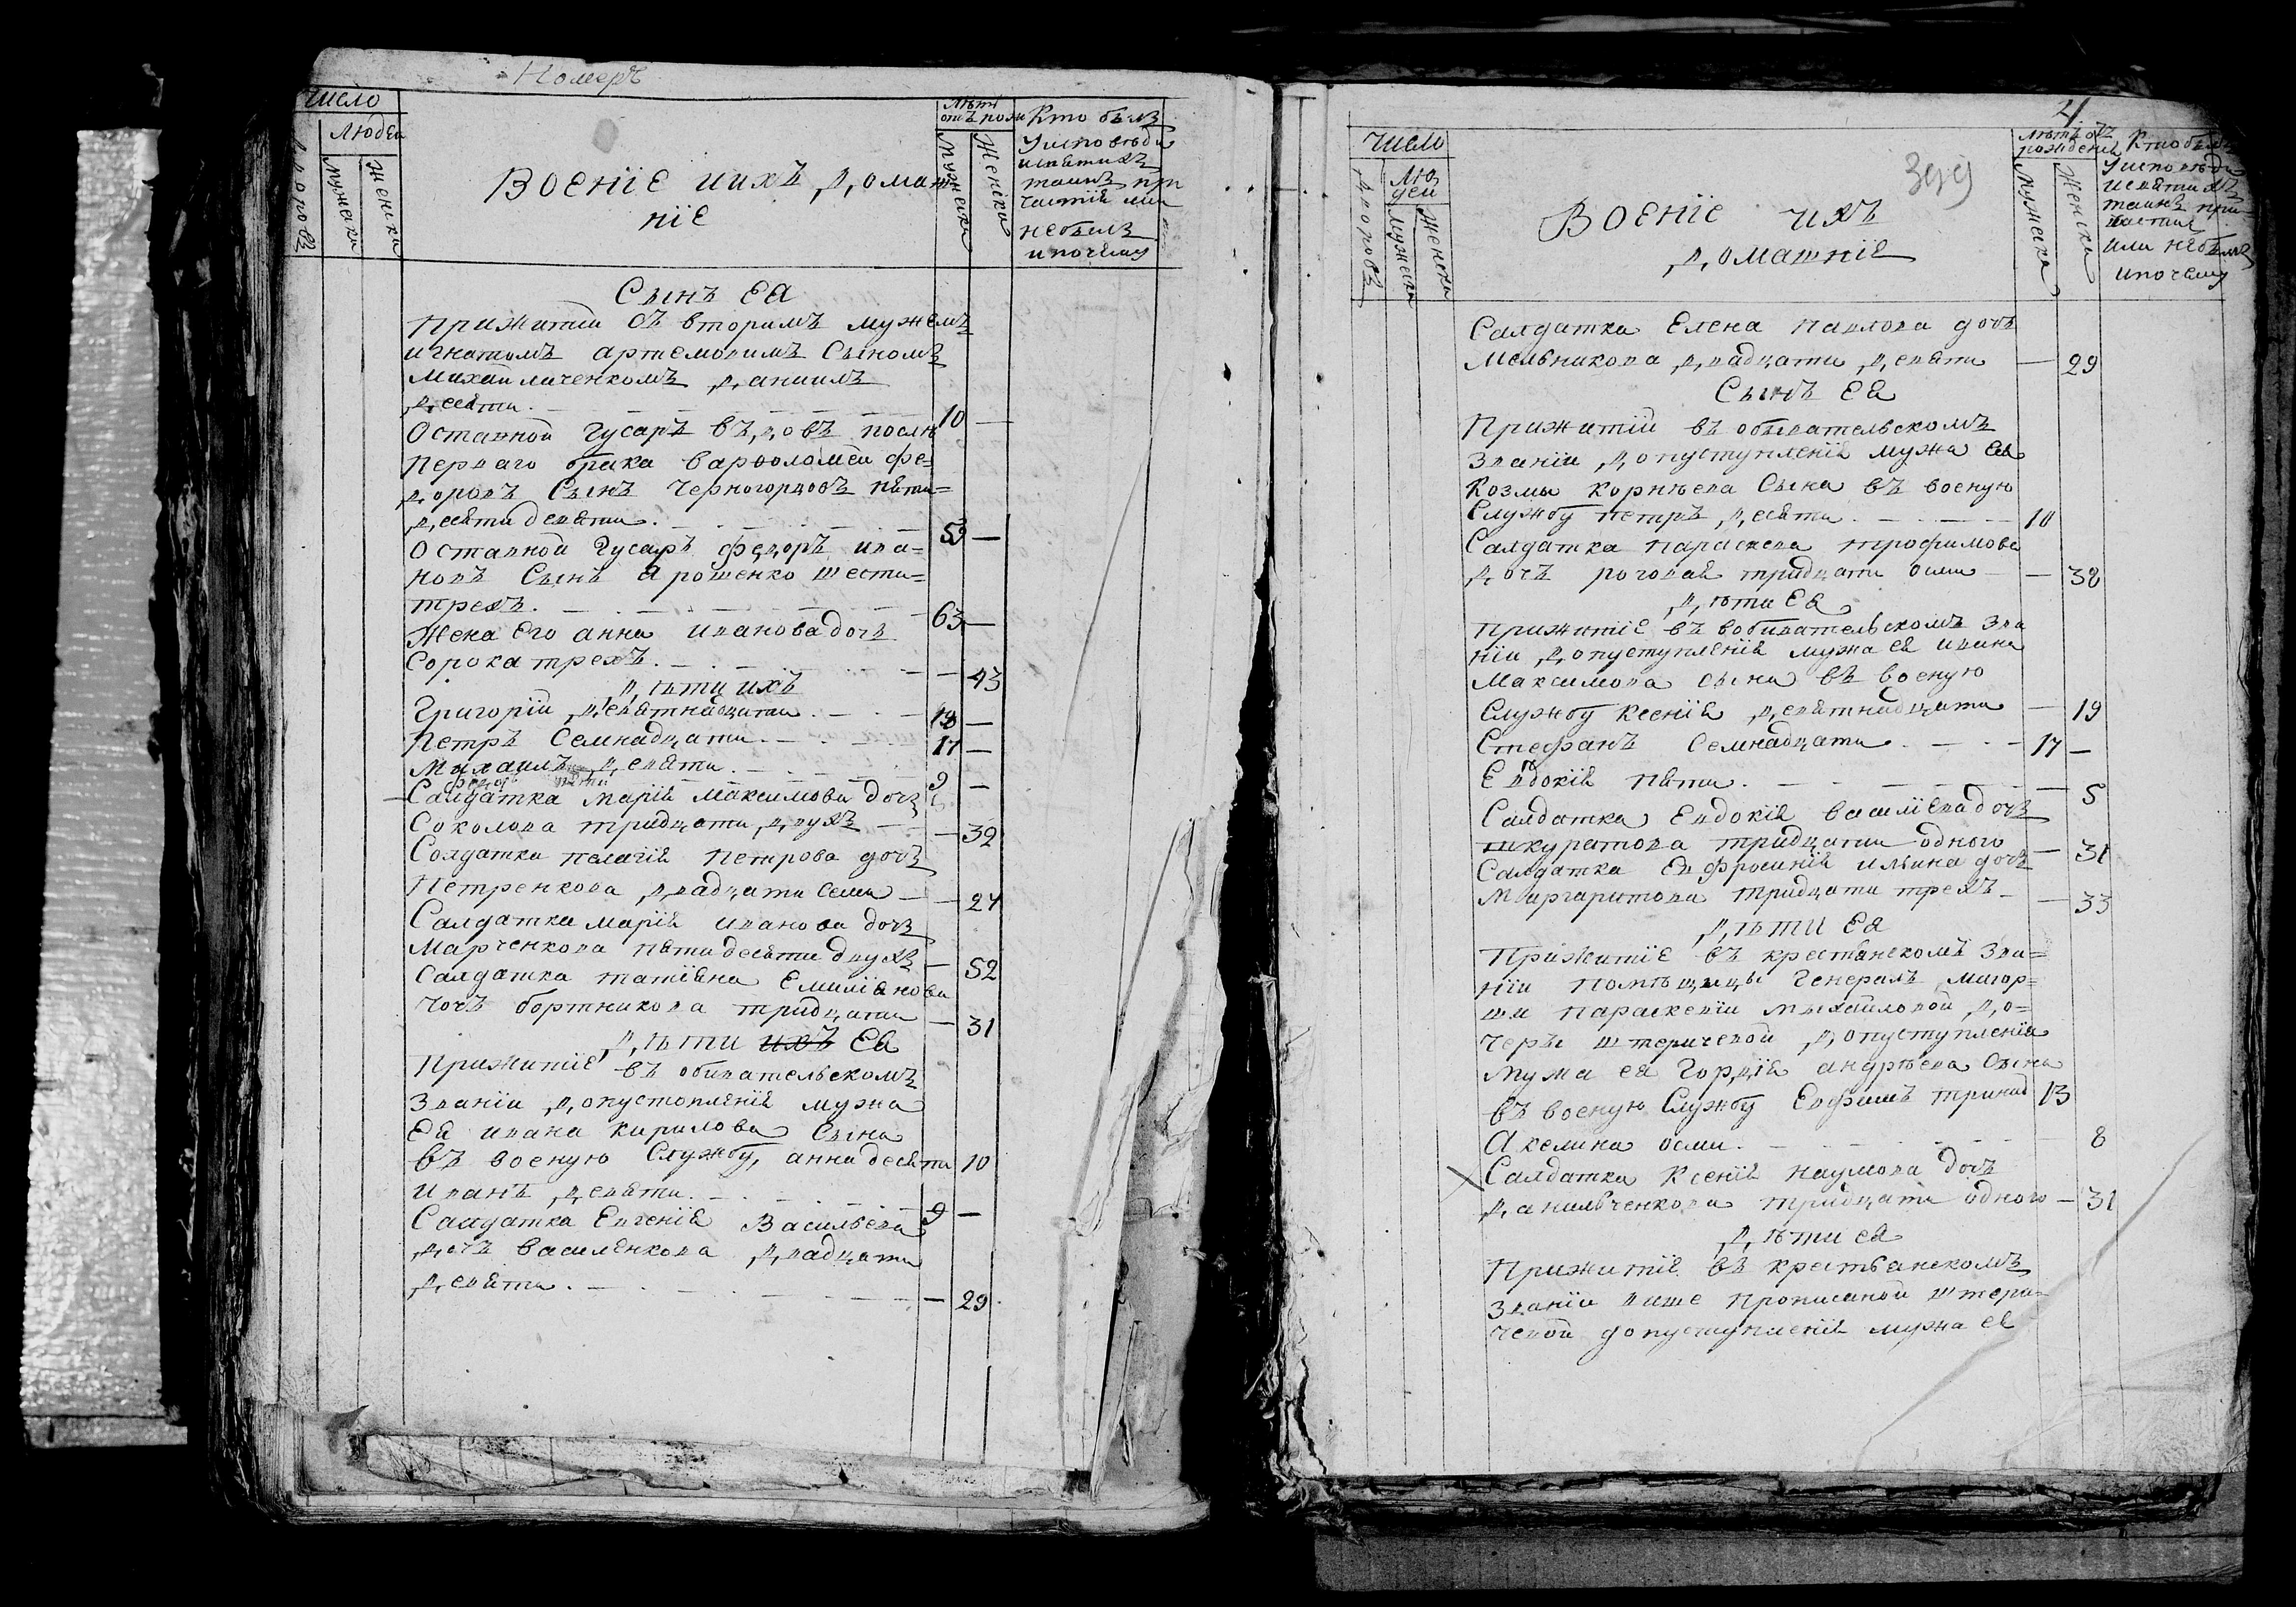 Номеръ
Число
Людей
Дворовъ
Мужеска
Женска
Военіе иихъ домаш
ніе
Лѣтъ
отъ рож
Мужеска
Женска
Кто былъ
Уисповѣди
исвятихъ
таинъ при
частія или
небылъ
ипочему
Сынъ Ея
Прижитій съ вторимъ мужемъ
игнатомъ артемовимъ Сыномъ
Михайличенкомъ даниилъ
десяти. 10 —
Оставной Гусаръ вдовъ послѣ
Перваго брака варфоломей фе=
доровъ Сынъ Черногорцовъ пяти=
десятидевяти. 59 —
Оставной Гусаръ федоръ ива=
новъ Сынъ Ярошенко шести=
трехъ. 63 —
Жена Его анна ивановадочь
Сорокатрехъ. — 43
дѣти ихъ
Григорій девятнадцати. 19 —
Петръ Семнадцати. 17 —
Михаилъ девяти. 9 —
Салдатка Марія Максимова дочь
Соколова тридцати двухъ — 32
Солдатка пелагія Петрова дочь
Петренкова двадцати семи — 27
Салдатка Марія иванова дочь
Марченкова пятидесяти двухъ — 52
Салдатка татіяна Емиліянова
дочъ бортникова тридцати — 31
дѣти ихъ Ея
Прижитіе въ обивательскомъ
Званіи допустопленія мужа
Ея ивана кирилова Сына
въ военую Службу, анна десяти 10
иванъ девяти. 9 —
Салдатка Евгенія Васильева
дочъ василенкова двадцати
девяти. — 29
4
399
Число
Лю
дей
Дворовъ
Мужеска
Женска
Военіе ихъ
домашніе
Лѣтъ отъ
рожденія
Мужеска
Женска
Кто былъ
Уисповѣди
исвятихъ
таинъ при=
частия
или небылъ
ипочему
Салдатка Елена павлова дочь
Мельникова двадцати девяти — 29
Сынъ Ея
Прижитій въ обывательскомъ
Званіи допуступленія мужа Ея
Козмы Корнѣева Сына въ военую
Службу петръ десяти. 10
Салдатка параскева трофимова
дочъ роговая тридцати осми — 38
дѣти Ея
Прижитіе въ вобивательскомъ зва
ніи допуступленія мужа Ея ивана
Максимова сына въ военую
Службу Ксенія девятнадцати — 19
Стефанъ Семнадцати. 17 —
Евдокія пяти. — 5
Салдатка Евдокія василіева дочъ
шкуратова тридцати одного — 31
Салдатка Евфросинія ильина дочъ
Маргаритова тридцати трехъ — 33
дѣти Ея
Прижитіе въ крестянскомъ зва=
ніи помѣщицы Генералъ Маіор=
ши параскевіи михайловой до=
черы штеричевой допуступленія
мужа ея Гордія андрѣева Сына
въ военую Службу Евфимъ тринад 13
Акелина осми. 8
Салдатка Ксенія наумова дочъ
данильченкова тридцати одного — 31
дѣти ея
Прижитіе въ крестьянскомъ
Званіи више прописаной штери=
чевой допуступленія мужа ея